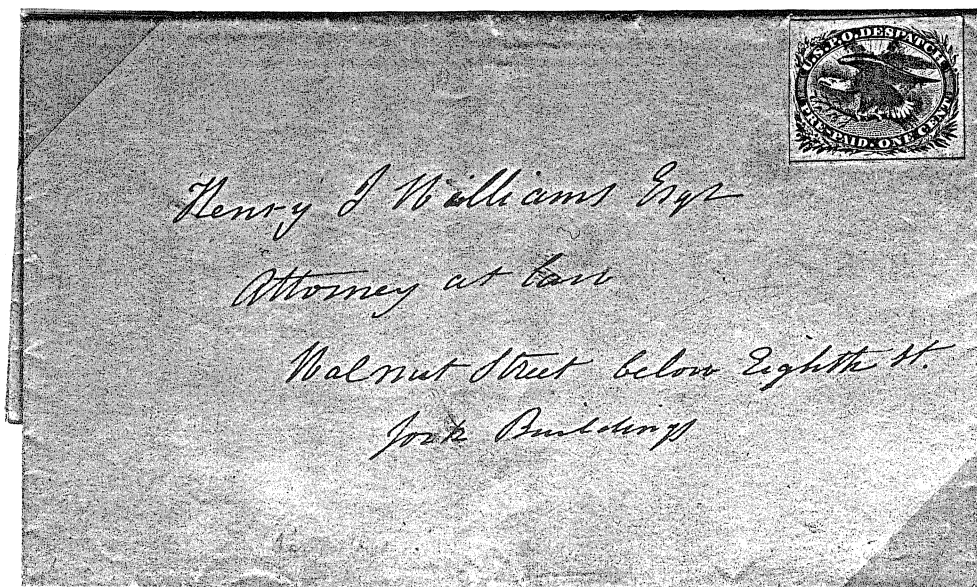 U.S.P.O. DESPATCH
PRE-PAID. ONE CENT
Henry J Williams Esqr
Attorney at Law
Walnut Street below Eighth St.
York Buildings